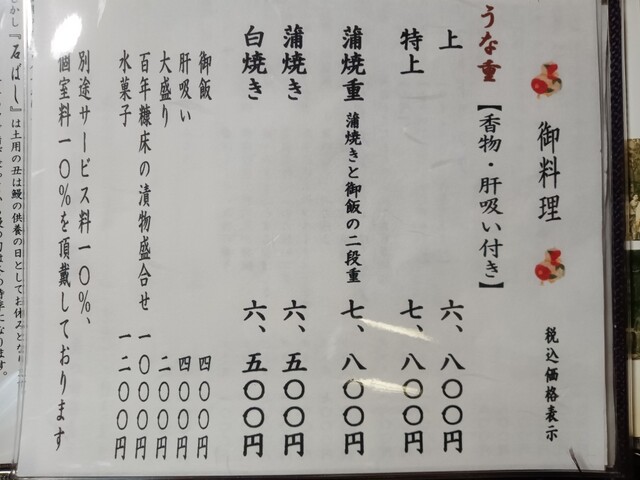 御料理
税込価格表示
うな重【香物・肝吸い付き】
上 六、八〇〇円
特上 七、八〇〇円
蒲焼重 蒲焼きと御飯の二段重 七、八〇〇円
蒲焼き 六、五〇〇円
白焼き 六、五〇〇円
御飯 四〇〇円
肝吸い 四〇〇円
大盛り 二〇〇円
百年糠床の漬物盛合せ 一〇〇〇円
水菓子 一二〇〇円
別途サービス料一〇%、
個室料一〇%を頂戴しております
『石ばし』は土用の丑は鰻の供養の日としてお休みとな